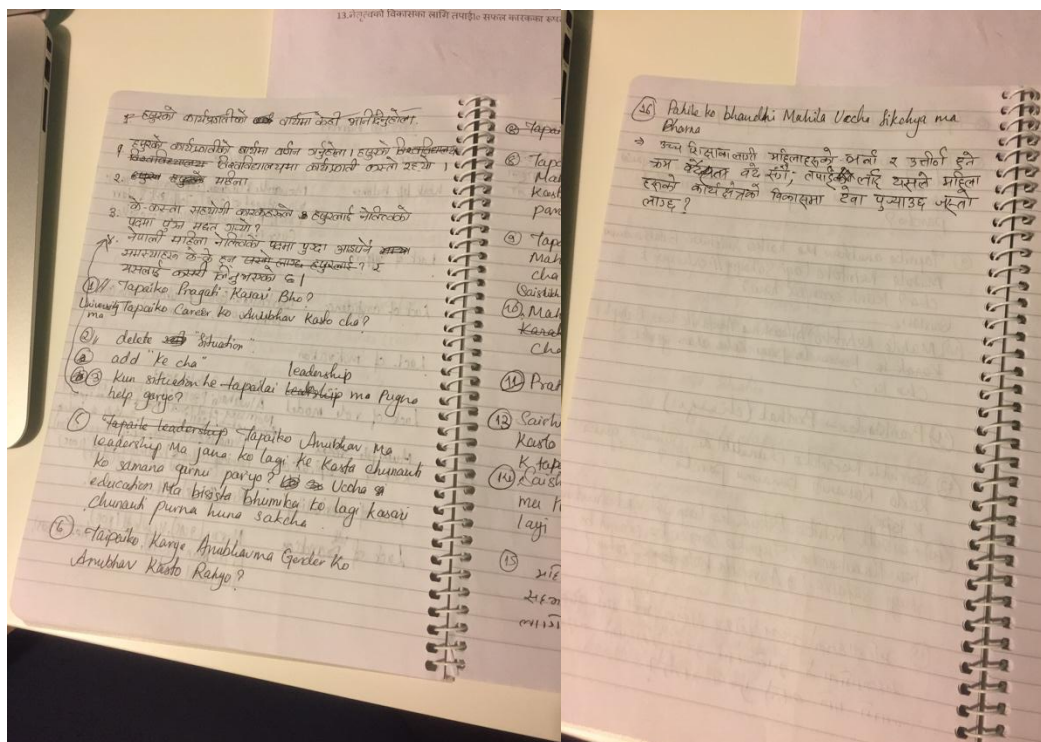 13.नेतृत्वको विकासका लागि तपाईं० सफल कारकका रूप
हजुरको कार्यप्रणालीको बारेमा केही भनिदिनुहोला.
१. हजुरको कार्यप्रणालीको बारेमा वर्णन गर्नुहोला। हजुरको
विश्वविद्यालयमा कार्यप्रणाली कस्तो रहयो।
२. महिना
३. के-कस्ता सहयोगी कारकहरूले हजुरलाई नेतृत्वको
पदमा पुग्न मद्दत गर्‍यो?
४. नेपाली महिला नेतृत्वको पदमा पुग्दा आइपर्ने
समस्याहरू के के हुन हजुरलाई? र
यसलाई कसरी लिनुभएको छ।
(1) Tapaiko Pragati Kasari Bho?
University Tapaiko Career ko Anubhav Kasto cha?
ma
(2) delete "Situation"
add "ke cha"
leadership
(3) Kun situation he tapailai leadership ma pugna
help garyo?
Tapaile leadership Tapaiko Anubhav Ma
leadership Ma jana ko lagi ke Kasta chunauti
ko samana garnu paryo? Uccha
education Ma bisista bhumika ko lagi kasari
chunauti purna huna sakcha
(6) Tapaiko Karya Anubhavma Gender Ko
Anubhav Kasto Rahyo?
Tapai
Tapa
Mah
Kast
par
(9) Tapa
Mah
cha
(10) Mah
Karak
cha
(11) Prat
(12) Sairh
Kasto
K tapa
(14)
ma
lagi
(15)
महि
सहभ
लागि
(16) Pahile ko bhandhi Mahila Uccha Sikchya ma
Bharna
→ उच्च शिक्षाका लागी महिलाहरूको भर्ना र उत्तीर्ण हुने
क्रम बढे संगै; तपाईंको लागि यसले महिला
हरूको कार्य क्षेत्रको विकासमा टेवा पुर्‍याउछ जस्तो
लाग्छ?